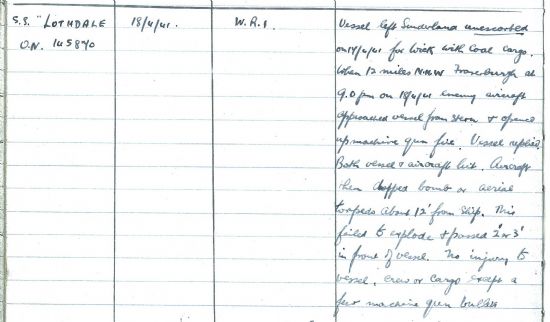 S.S. "LOTHDALE 18/4/41. W.R.I. Vessel left Sunderland unescorted
O.N. 145870 on 17/4/41 for Wick with Coal cargo.
When 12 miles NNW Fraserburgh at
9.0 pm on 18/4/41 enemy aircraft
approached vessel from stern & opened
up machine gun fire. Vessel replied.
Both vessel & aircraft hit. Aircraft
then dropped bomb or aerial
torpedo about 12' from ship. This
failed to explode & passed 2' or 3'
in front of vessel. No injury to
vessel, crew or cargo except a
few machine gun bullets